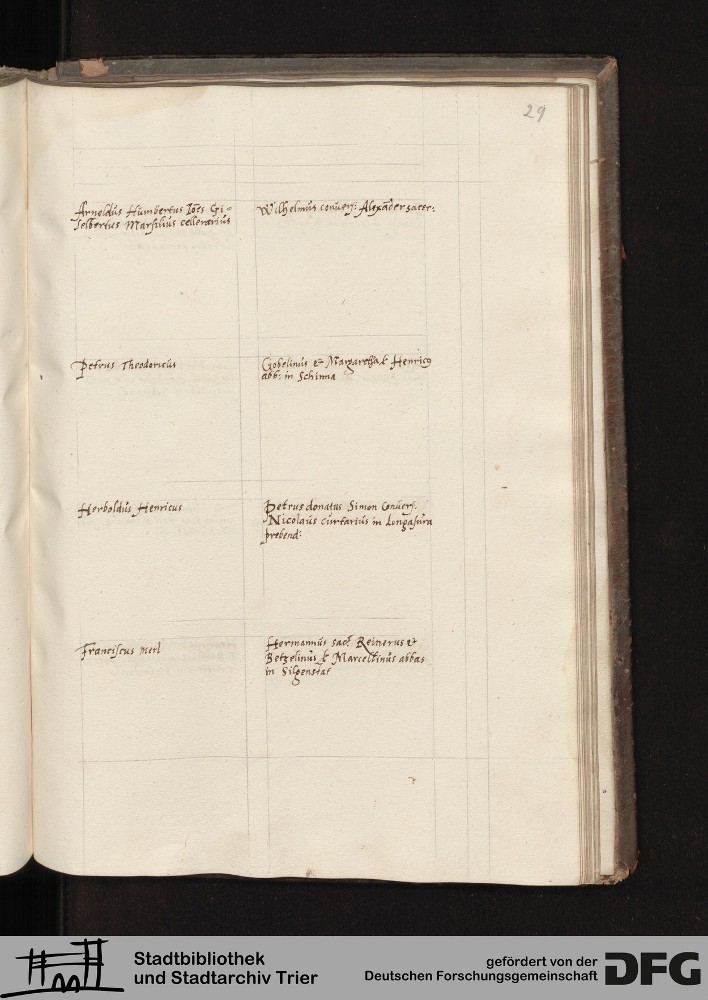 29
Arnoldus Humbertus Joes Gi-
selbertus Marsilius cellerarius
Wilhelmus convers: Alexader sacer:
Petrus Theodoricus
Gobelinus et Margaretha Henric9
abb: in Schinna
Herboldus Henricus
Petrus donatus Simon Convers:
Nicolaus curtarius in Longasura
prebend:
Franciscus merl
Hermannus sac Reinerus et
Betzelinus Marcellinus abbas
in Silgenstat
Stadtbibliothek
und Stadtarchiv Trier
gefördert von der
Deutschen Forschungsgemeinschaft
DFG